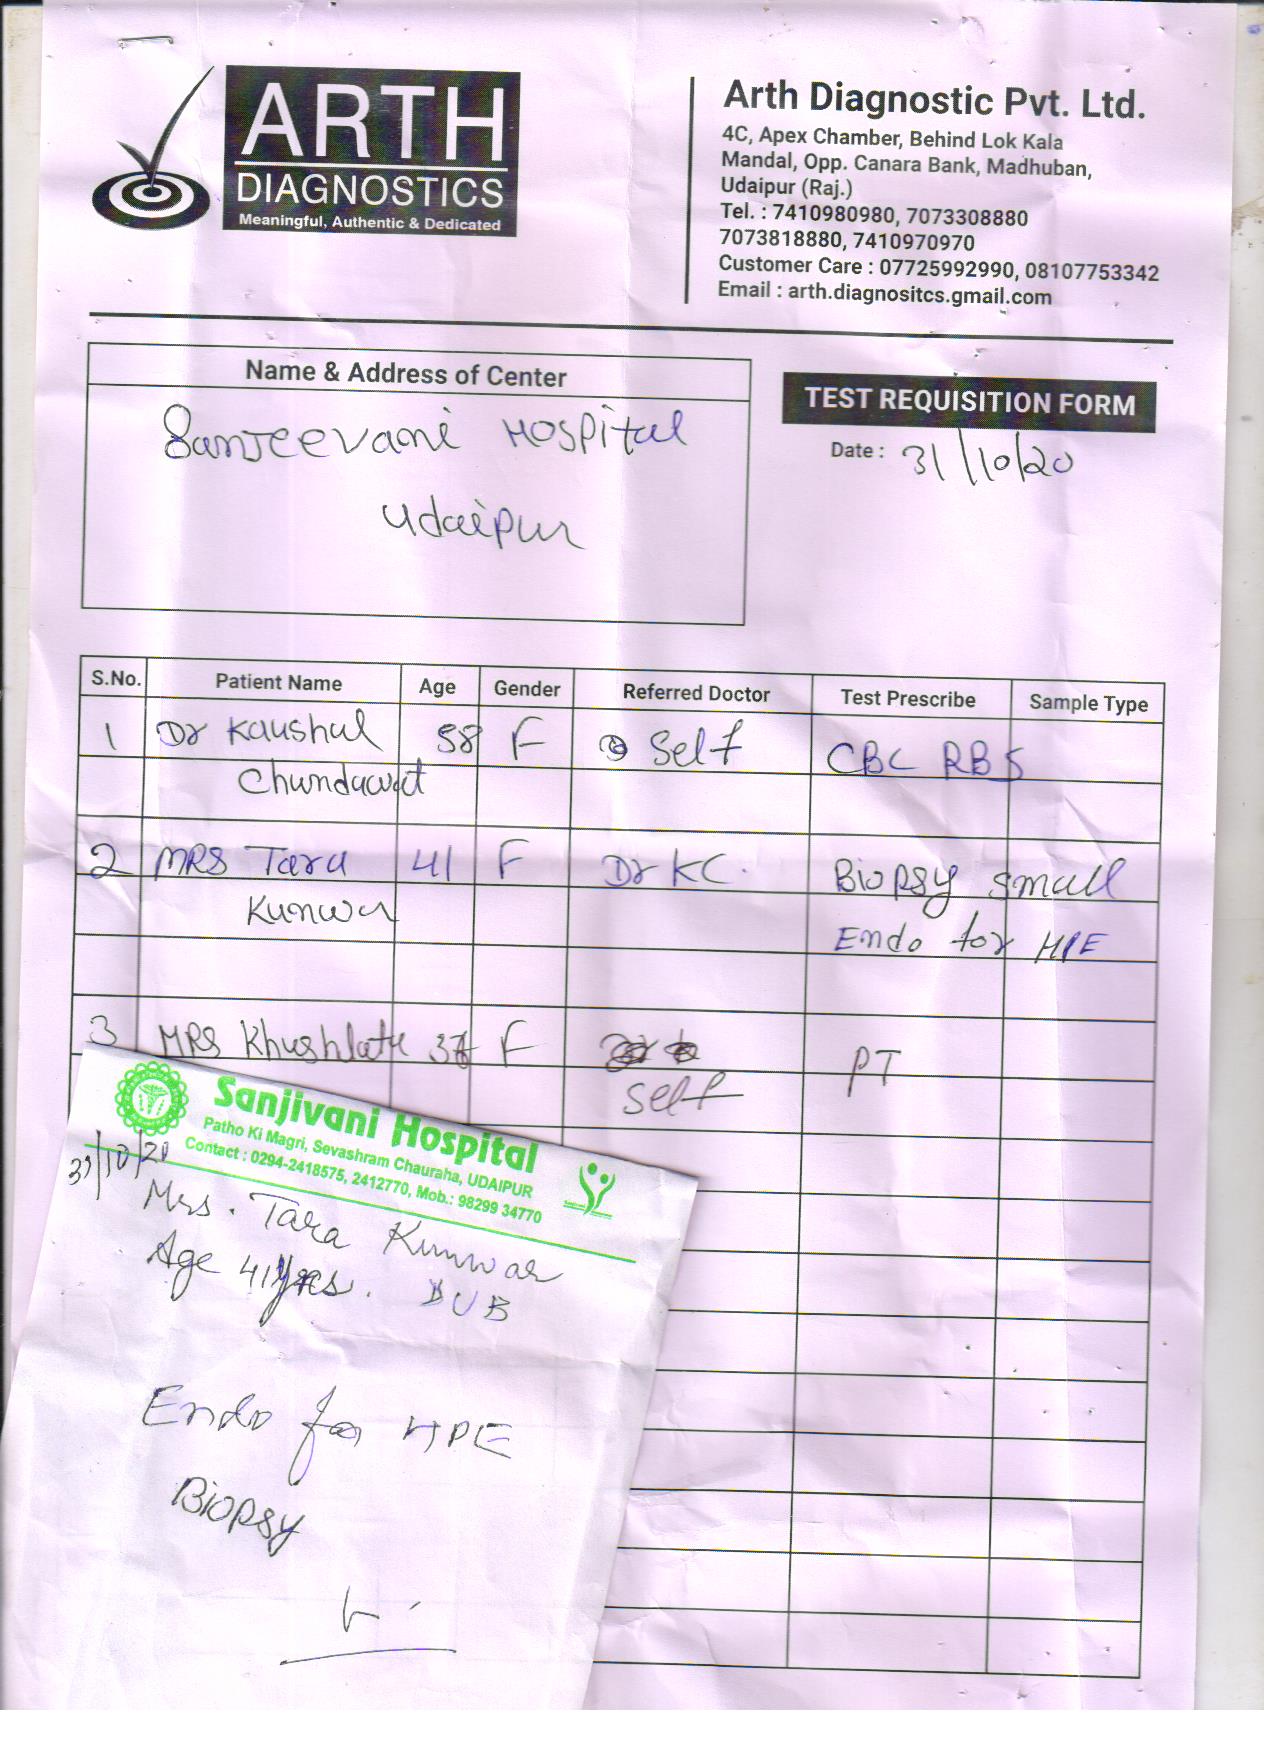 ARTH
DIAGNOSTICS
Meaningful, Authentic & Dedicated
Arth Diagnostic Pvt. Ltd.
4C, Apex Chamber, Behind Lok Kala
Mandal, Opp. Canara Bank, Madhuban,
Udaipur (Raj.)
Tel. : 7410980980, 7073308880
7073818880, 7410970970
Customer Care : 07725992990, 08107753342
Email : arth.diagnositcs.gmail.com
Name & Address of Center
Sanjeevani Hospital
Udaipur
TEST REQUISITION FORM
Date : 31/10/20
S.No. Patient Name Age Gender Referred Doctor Test Prescribe Sample Type
1 Dr Kaushal 58 F Self CBC RBS
Chundawat
2 MRS Tara 41 F Dr KC. Biopsy small
Kunwar Endo for HPE
3 MRS Khushlata F PT
Self
Sanjivani Hospital
Patho Ki Magri, Sevashram Chauraha, UDAIPUR
Contact : 0294-2418575, 2412770, Mob.: 98299 34770
31/10/20
Mrs. Tara Kunwar
Age 41yrs. DUB
Endo for HPE
Biopsy